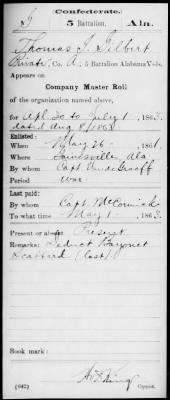 Confederate.
G 5 Battalion. Ala.
Thomas J. Gilbert
Private, Co. A, 5 Battalion Alabama Vols.
Appears on
Company Muster Roll
of the organization named above,
for Apl 30 to July 1, 1863.
dated Aug 8/1863
Enlisted:
When May 26, 1861.
Where Gainesville, Ala
By whom Capt Vandegraaff
Period War
Last paid:
By whom Capt. McCormick
To what time May 1, 1863.
Present or absent Present
Remarks: Deduct Bayonet
Scabbard (lost)
Book mark:
King
(642) Copyist.